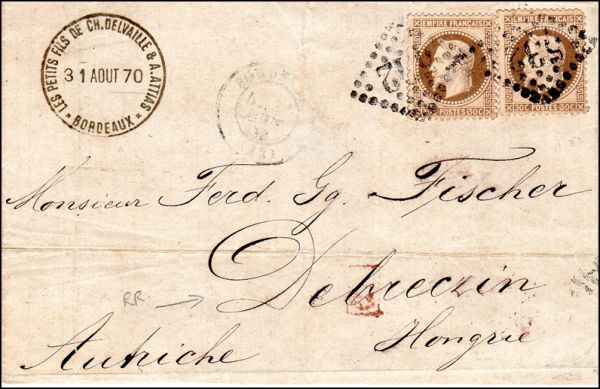 LES PETITS FILS DE CH. DELVAILLE & A. ATTIAS
31 AOUT 70
* BORDEAUX *
EMPIRE FRANÇAIS
POSTES 30C
EMPIRE FRANÇAIS
30C POSTES 30C
Monsieur Ferd. Gg. Fischer
Debreczin
RR
Hongrie
Autriche